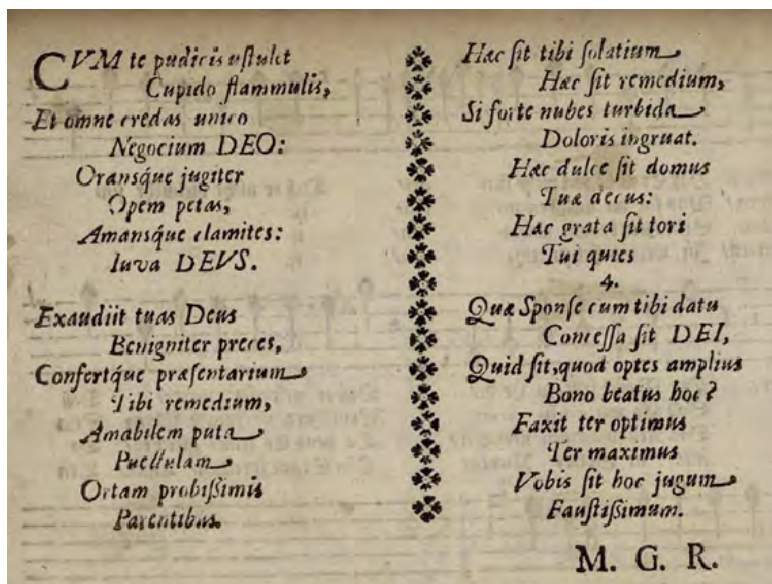 CVM te pudicis ustulet
Cupido flammulis,
Et omne credas unico
Negocium DEO:
Oransq́ue jugiter
Opem petas,
Amansq́ue clamites:
Iuva DEVS.
Exaudiit tuas Deus
Benigniter preces,
Confertq́ue præsentarium
Tibi remedium,
Amabilem puta
Puellulam
Ortam probißimis
Parentibus.
Hæc ſit tibi ſolatium
Hæc ſit remedium,
Si forte nubes turbida
Doloris ingruat.
Hæc dulce ſit domus
Tuæ decus:
Hæc grata ſit tori
Tui quies
4.
Quæ Sponſe cum tibi datu
Conceſſa ſit DEI,
Quid ſit, quod optes amplius
Bono beatus hoc?
Faxit ter optimus
Ter maximus
Vobis ſit hoc jugum
Fauſtißimum.
M. G. R.